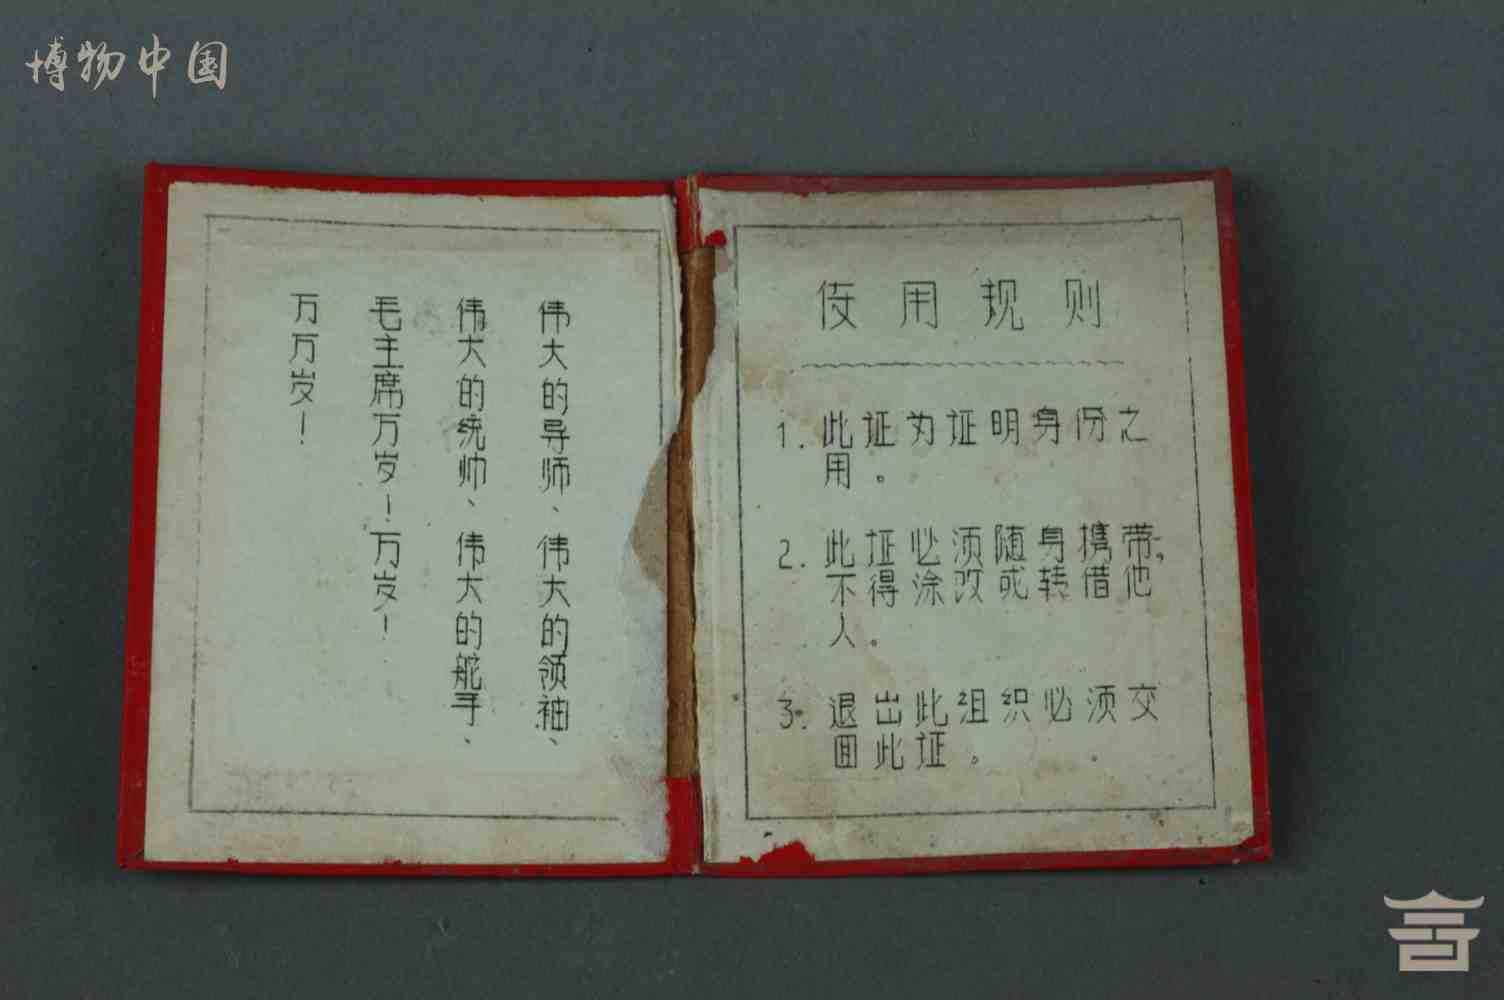 博物中国
伟大的导师、伟大的领袖、
伟大的统帅、伟大的舵手、
毛主席万岁！万岁！
万万岁！
使用规则
1. 此证为证明身份之
用。
2. 此证必须随身携带，
不得涂改或转借他
人。
3. 退出此组织必须交
回此证。